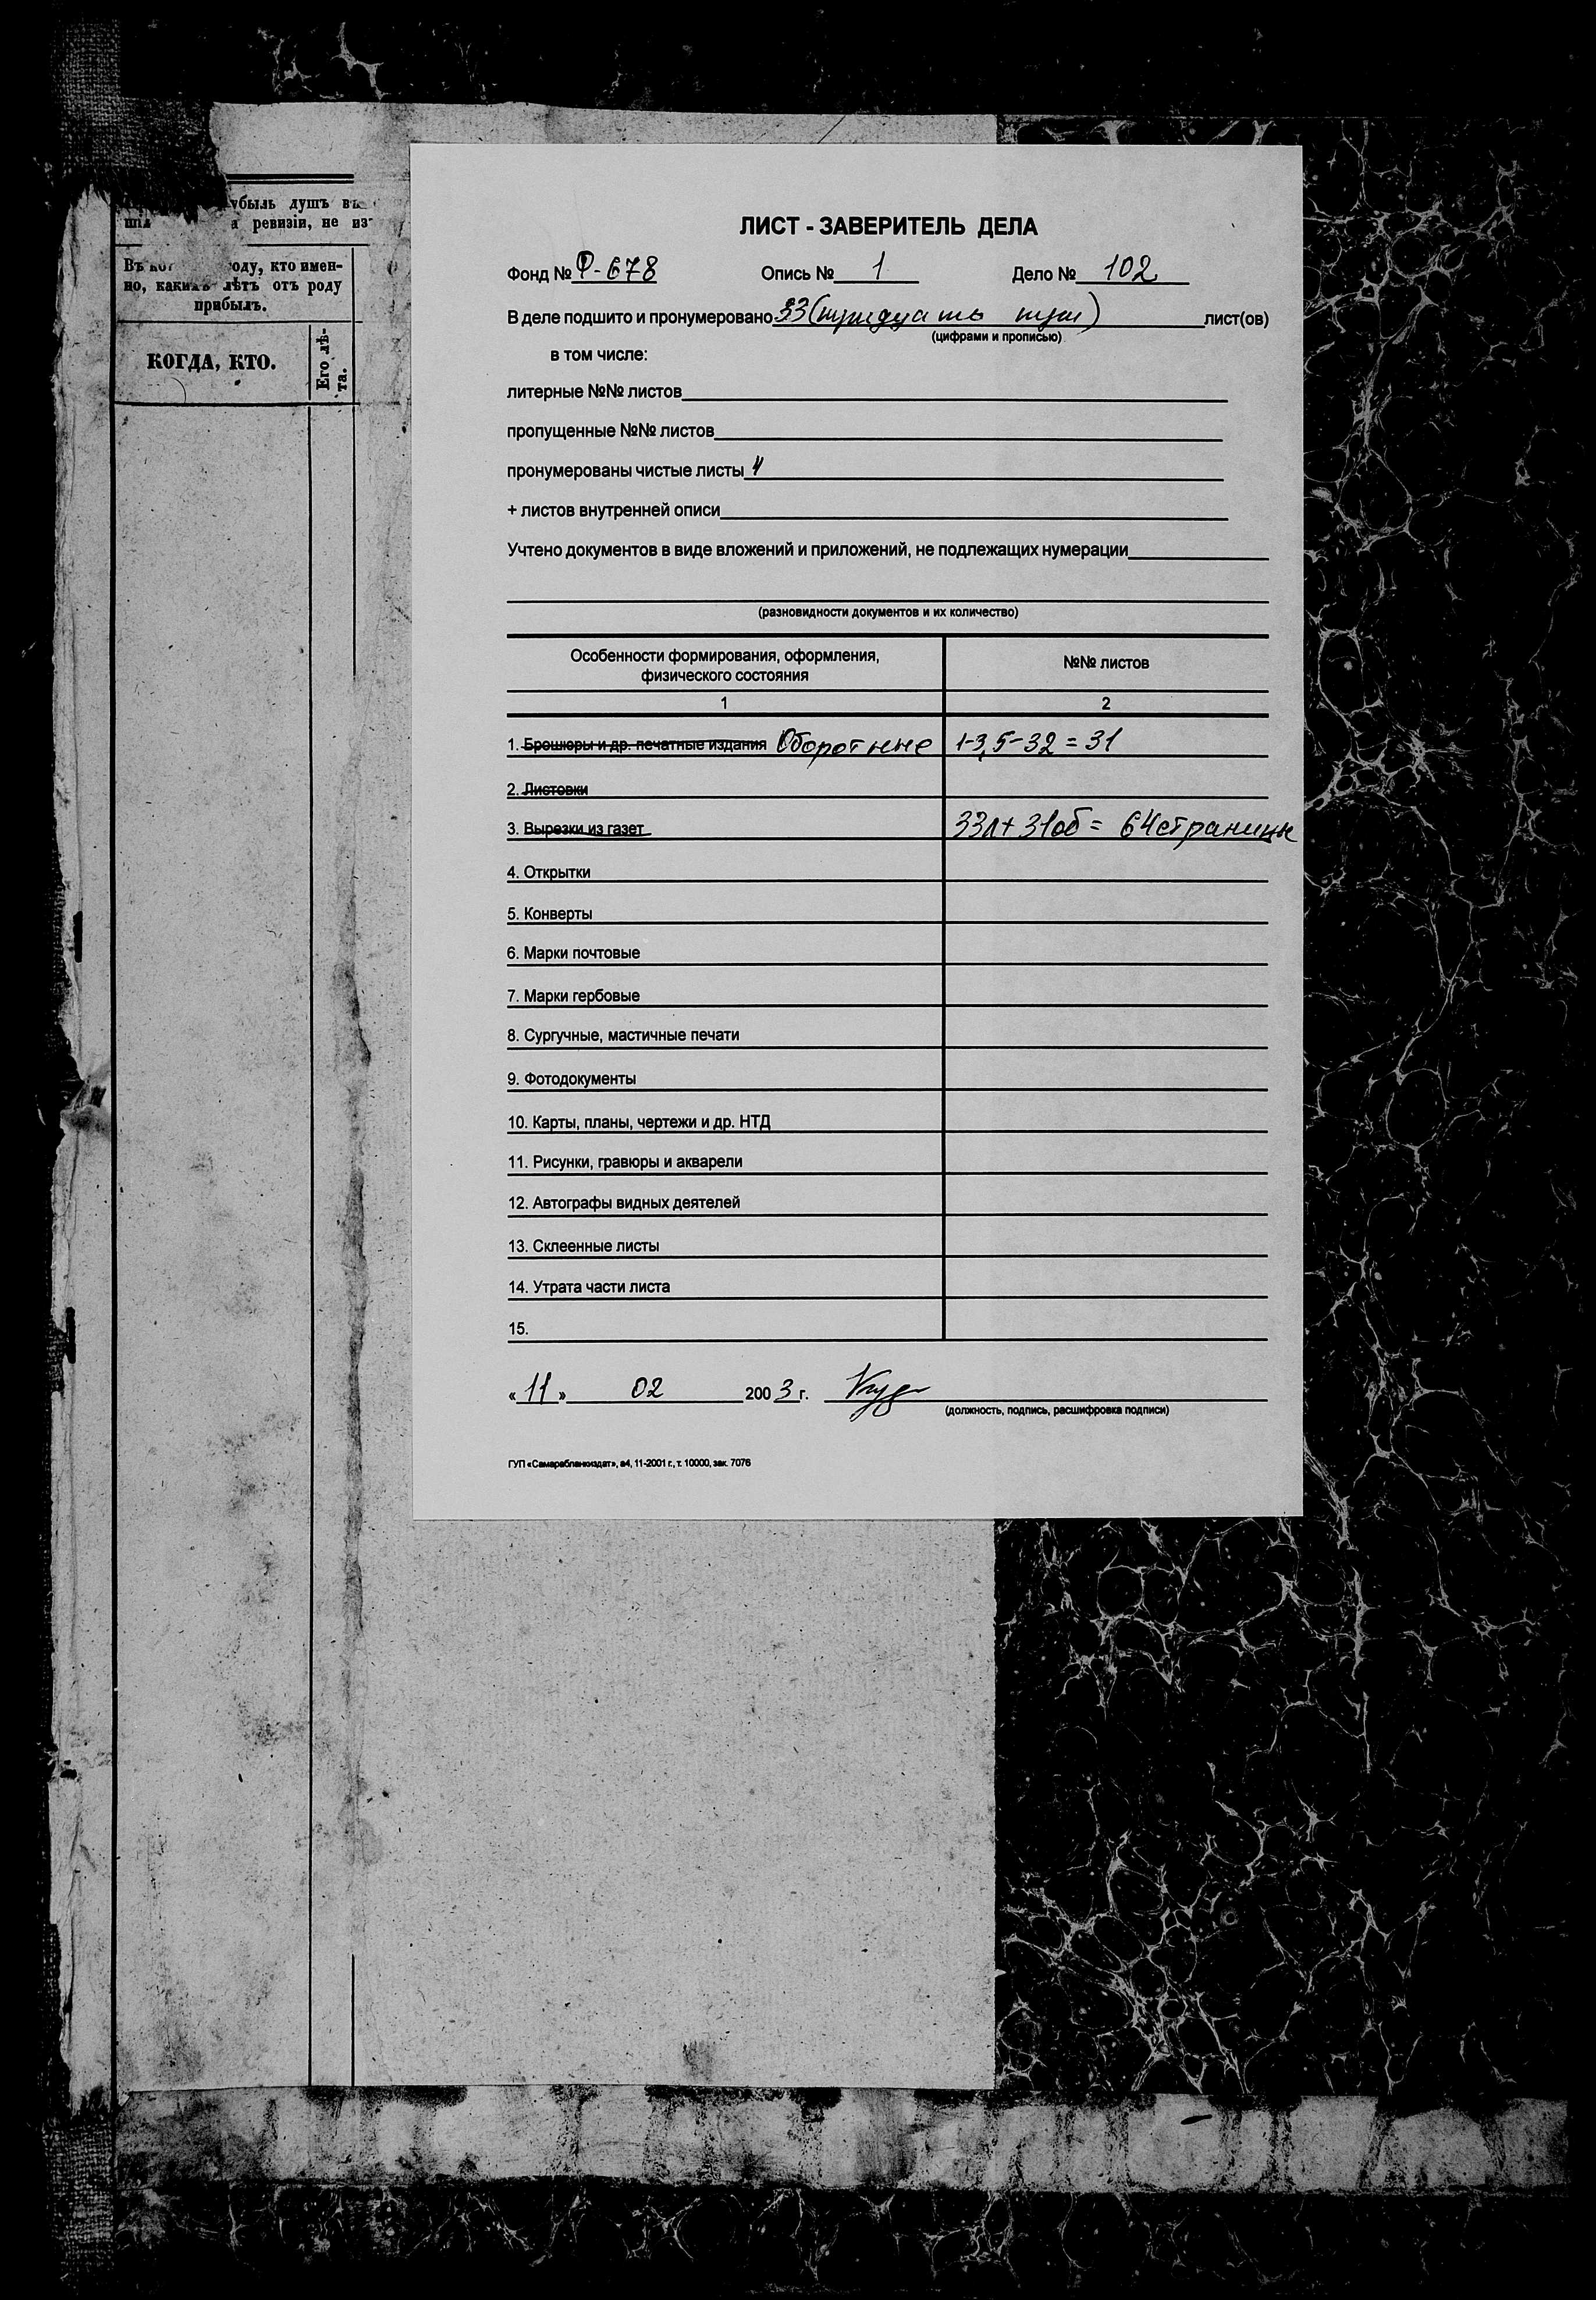 убыль душъ
ревизіи, не из
оду, кто имен-
но, какихъ лѣтъ отъ роду
прибылъ.
КОГДА, КТО.
Его лѣ-
та.
ЛИСТ - ЗАВЕРИТЕЛЬ ДЕЛА
Фонд № Ф-678 Опись № 1 Дело № 102
В деле подшито и пронумеровано 33 (тридцать три) лист(ов)
(цифрами и прописью)
в том числе:
литерные №№ листов
пропущенные №№ листов
пронумерованы чистые листы 4
+ листов внутренней описи
Учтено документов в виде вложений и приложений, не подлежащих нумерации
(разновидности документов и их количество)
Особенности формирования, оформления, №№ листов
физического состояния
1 2
1. Брошюры и др. печатные издания Оборотные 1-3,5-32 = 31
2. Листовки
3. Вырезки из газет 33л + 31об = 64 страницы
4. Открытки
5. Конверты
6. Марки почтовые
7. Марки гербовые
8. Сургучные, мастичные печати
9. Фотодокументы
10. Карты, планы, чертежи и др. НТД
11. Рисунки, гравюры и акварели
12. Автографы видных деятелей
13. Склеенные листы
14. Утрата части листа
15.
« 11 » 02 200 3 г.
(должность, подпись, расшифровка подписи)
ГУП «Самарабланкиздат», а4, 11-2001 г., т. 10000, зак. 7076